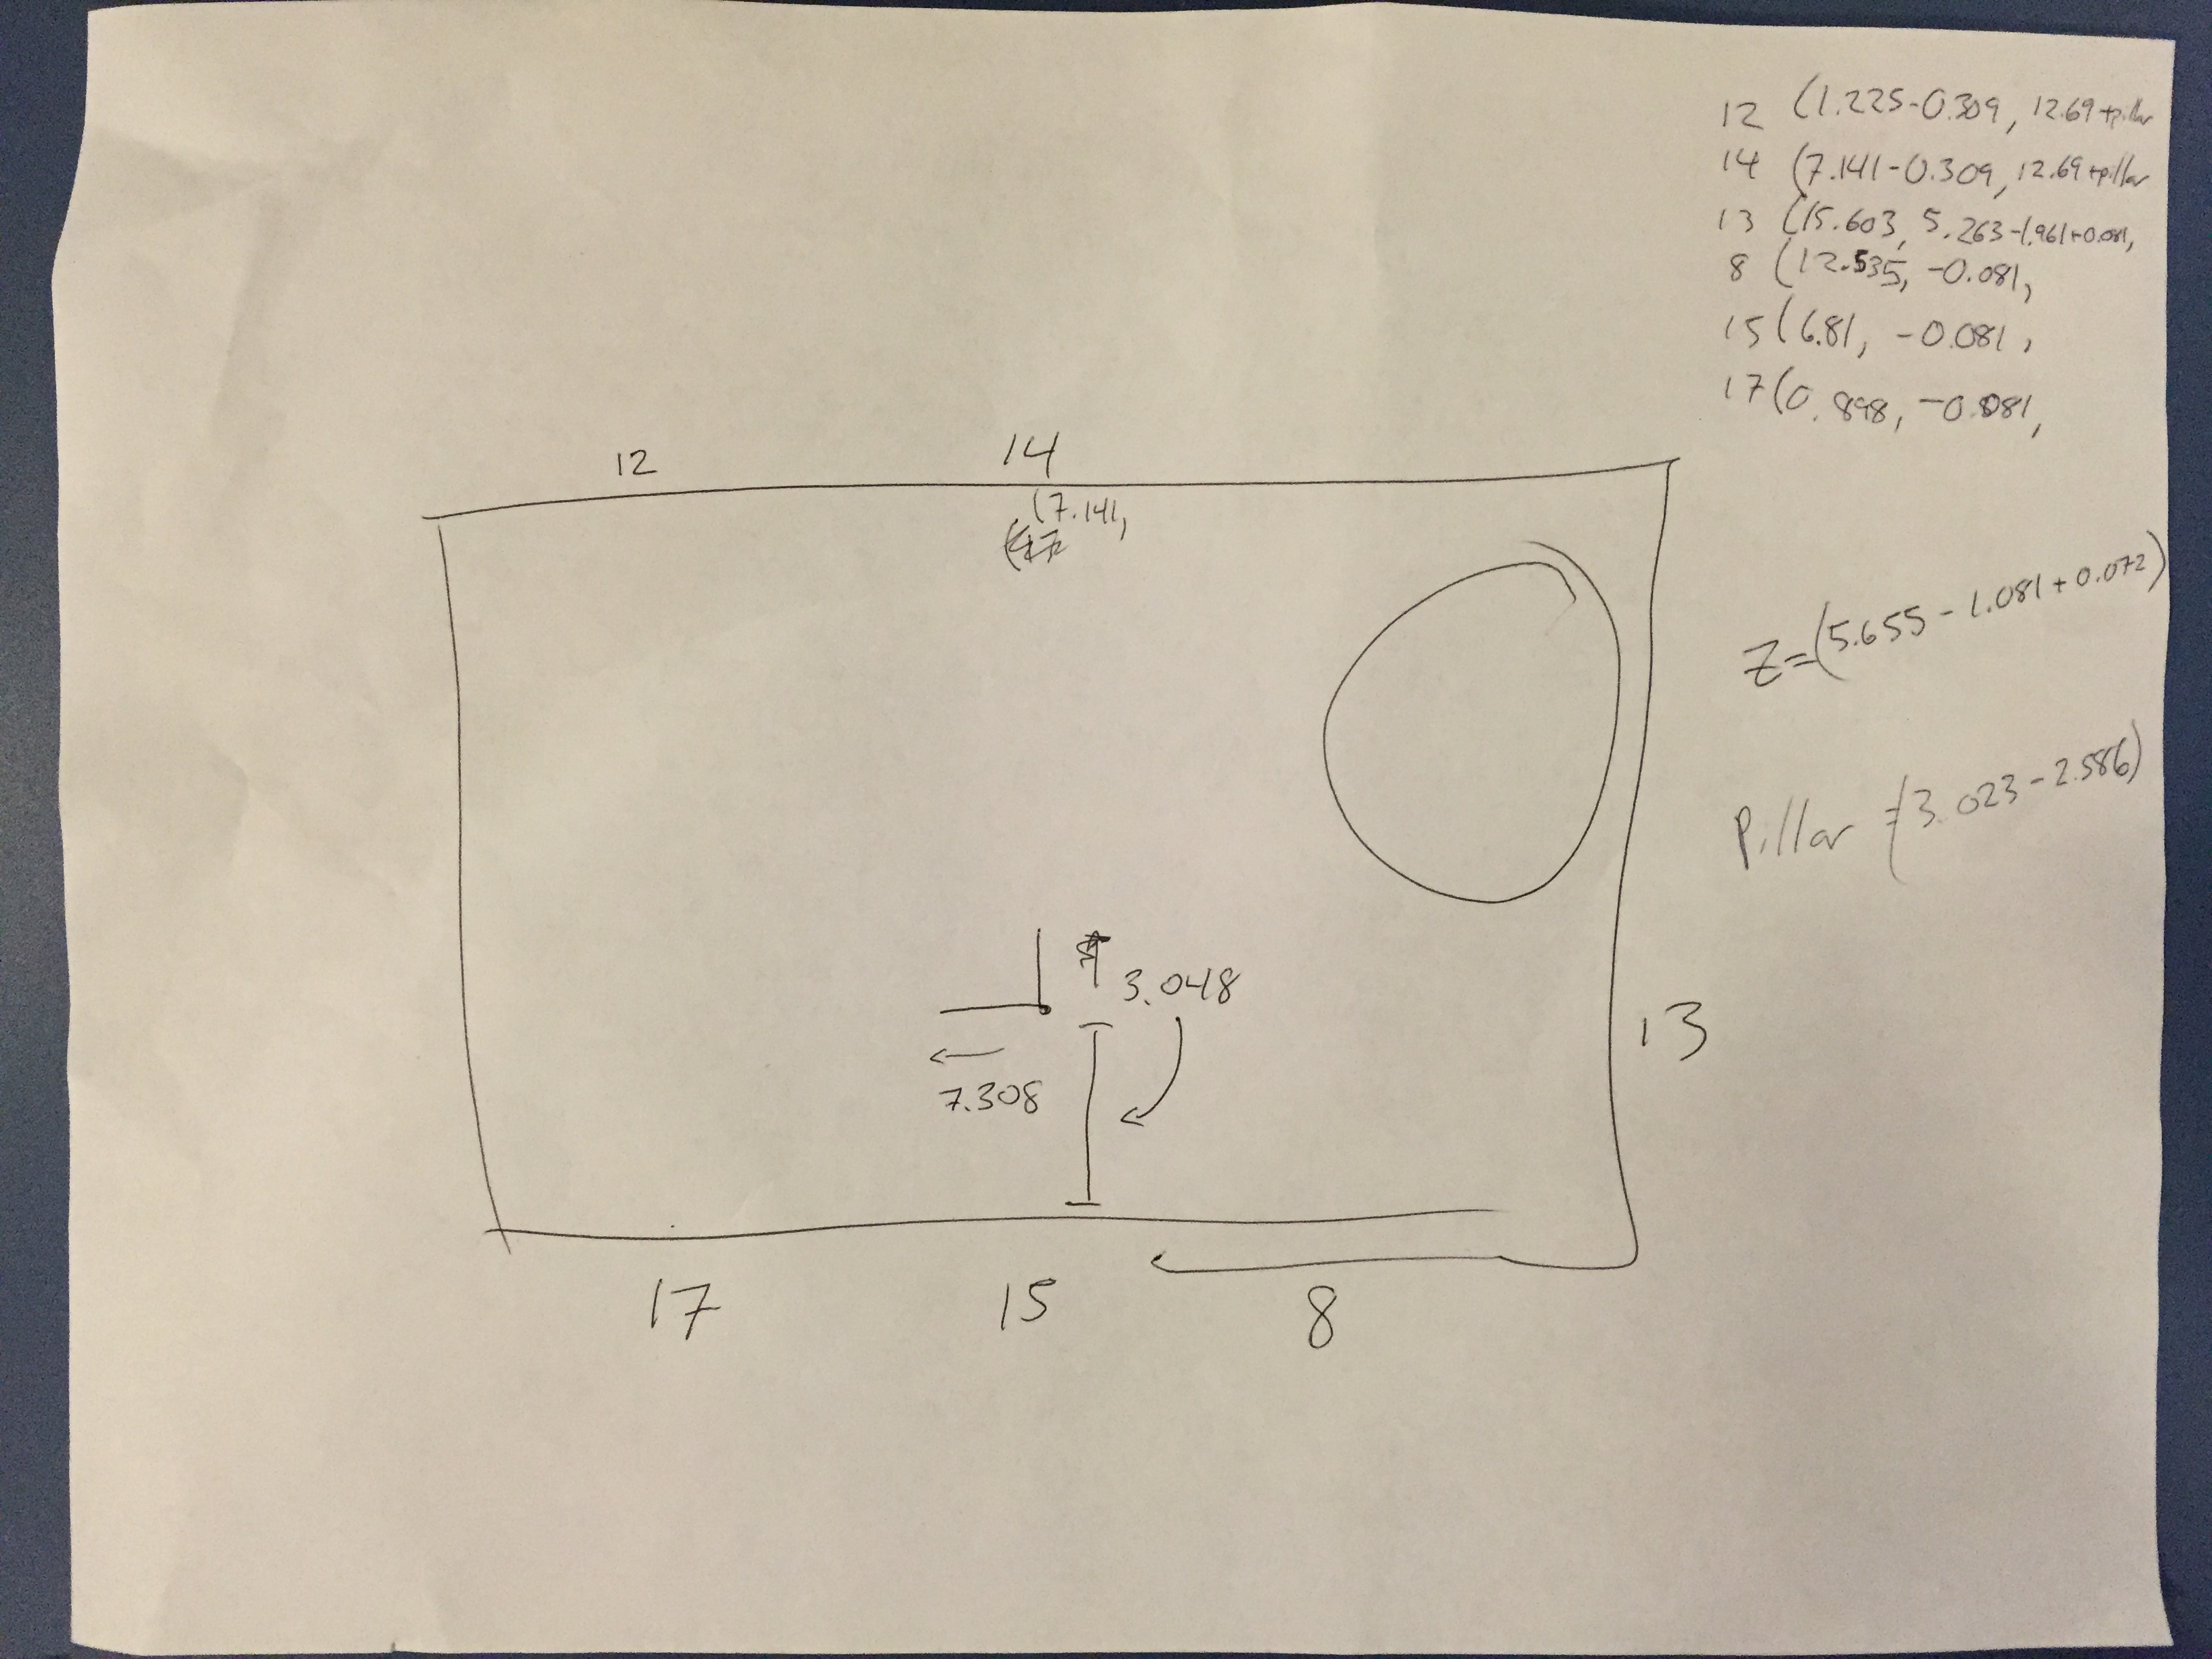 12 (1.225-0.309, 12.69+pillar
14 (7.141-0.309, 12.69+pillar
13 (15.603, 5.263-1.961+0.081,
8 (12.535, -0.081,
15 (6.81, -0.081,
17 (0.898, -0.081,
12
14
(7.141,
Z=(5.655-1.081+0.072)
Pillar =(3.023-2.586)
3.048
13
7.308
17
15
8